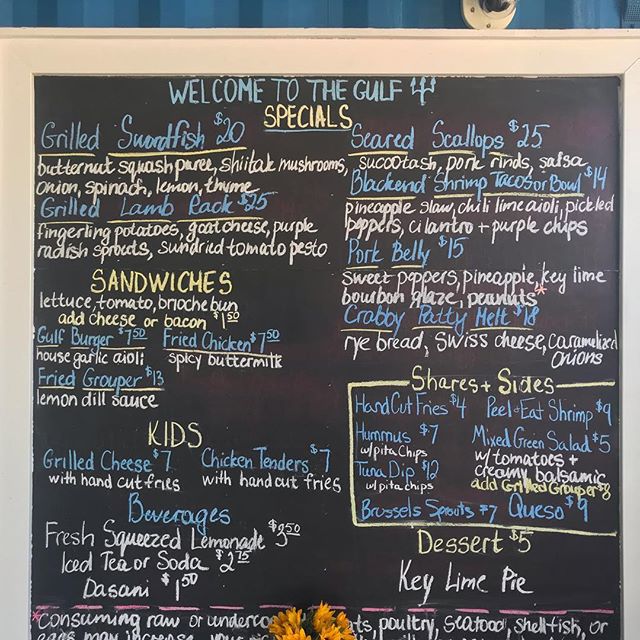 WELCOME TO THE GULF
SPECIALS
Grilled Swordfish $20
butternut squash puree, shiitak mushrooms,
onion, spinach, lemon, thyme
Grilled Lamb Rack $25
fingerling potatoes, goat cheese, purple
radish sprouts, sundried tomato pesto
Seared Scallops $25
succotash, pork rinds, salsa
Blackend Shrimp Tacos or Bowl $14
pineapple slaw, chili lime aioli, pickled
peppers, cilantro + purple chips
Pork Belly $15
sweet peppers, pineapple, key lime
bourbon glaze, peanuts *
Crabby Patty Melt $18
rye bread, swiss cheese, caramelized
onions
SANDWICHES
lettuce, tomato, brioche bun
add cheese or bacon $1.50
Gulf Burger $7.50 Fried Chicken $7.50
house garlic aioli spicy buttermilk
Fried Grouper $13
lemon dill sauce
KIDS
Grilled Cheese $7 Chicken Tenders $7
with hand cut fries with hand cut fries
Beverages
Fresh Squeezed Lemonade $3.50
Iced Tea or Soda $2.75
Dasani $1.50
Shares + Sides
Hand Cut Fries $4 Peel + Eat Shrimp $9
Hummus $7
w/pita chips
Tuna Dip $12
w/pita chips
Mixed Green Salad $5
w/tomatoes +
creamy balsamic
add Grilled Grouper
Brussels Sprouts $7 Queso $9
Dessert $5
Key Lime Pie
*Consuming raw or underco poultry, seafood, shellfish, or
eggs may increase your